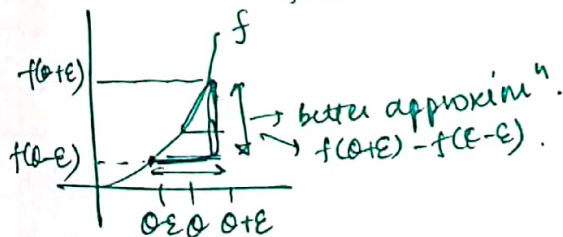 f
f(θ+ε)
→ better approximⁿ.
f(θ-ε)
→ f(θ+ε) - f(ε-ε).
θ-ε θ θ+ε